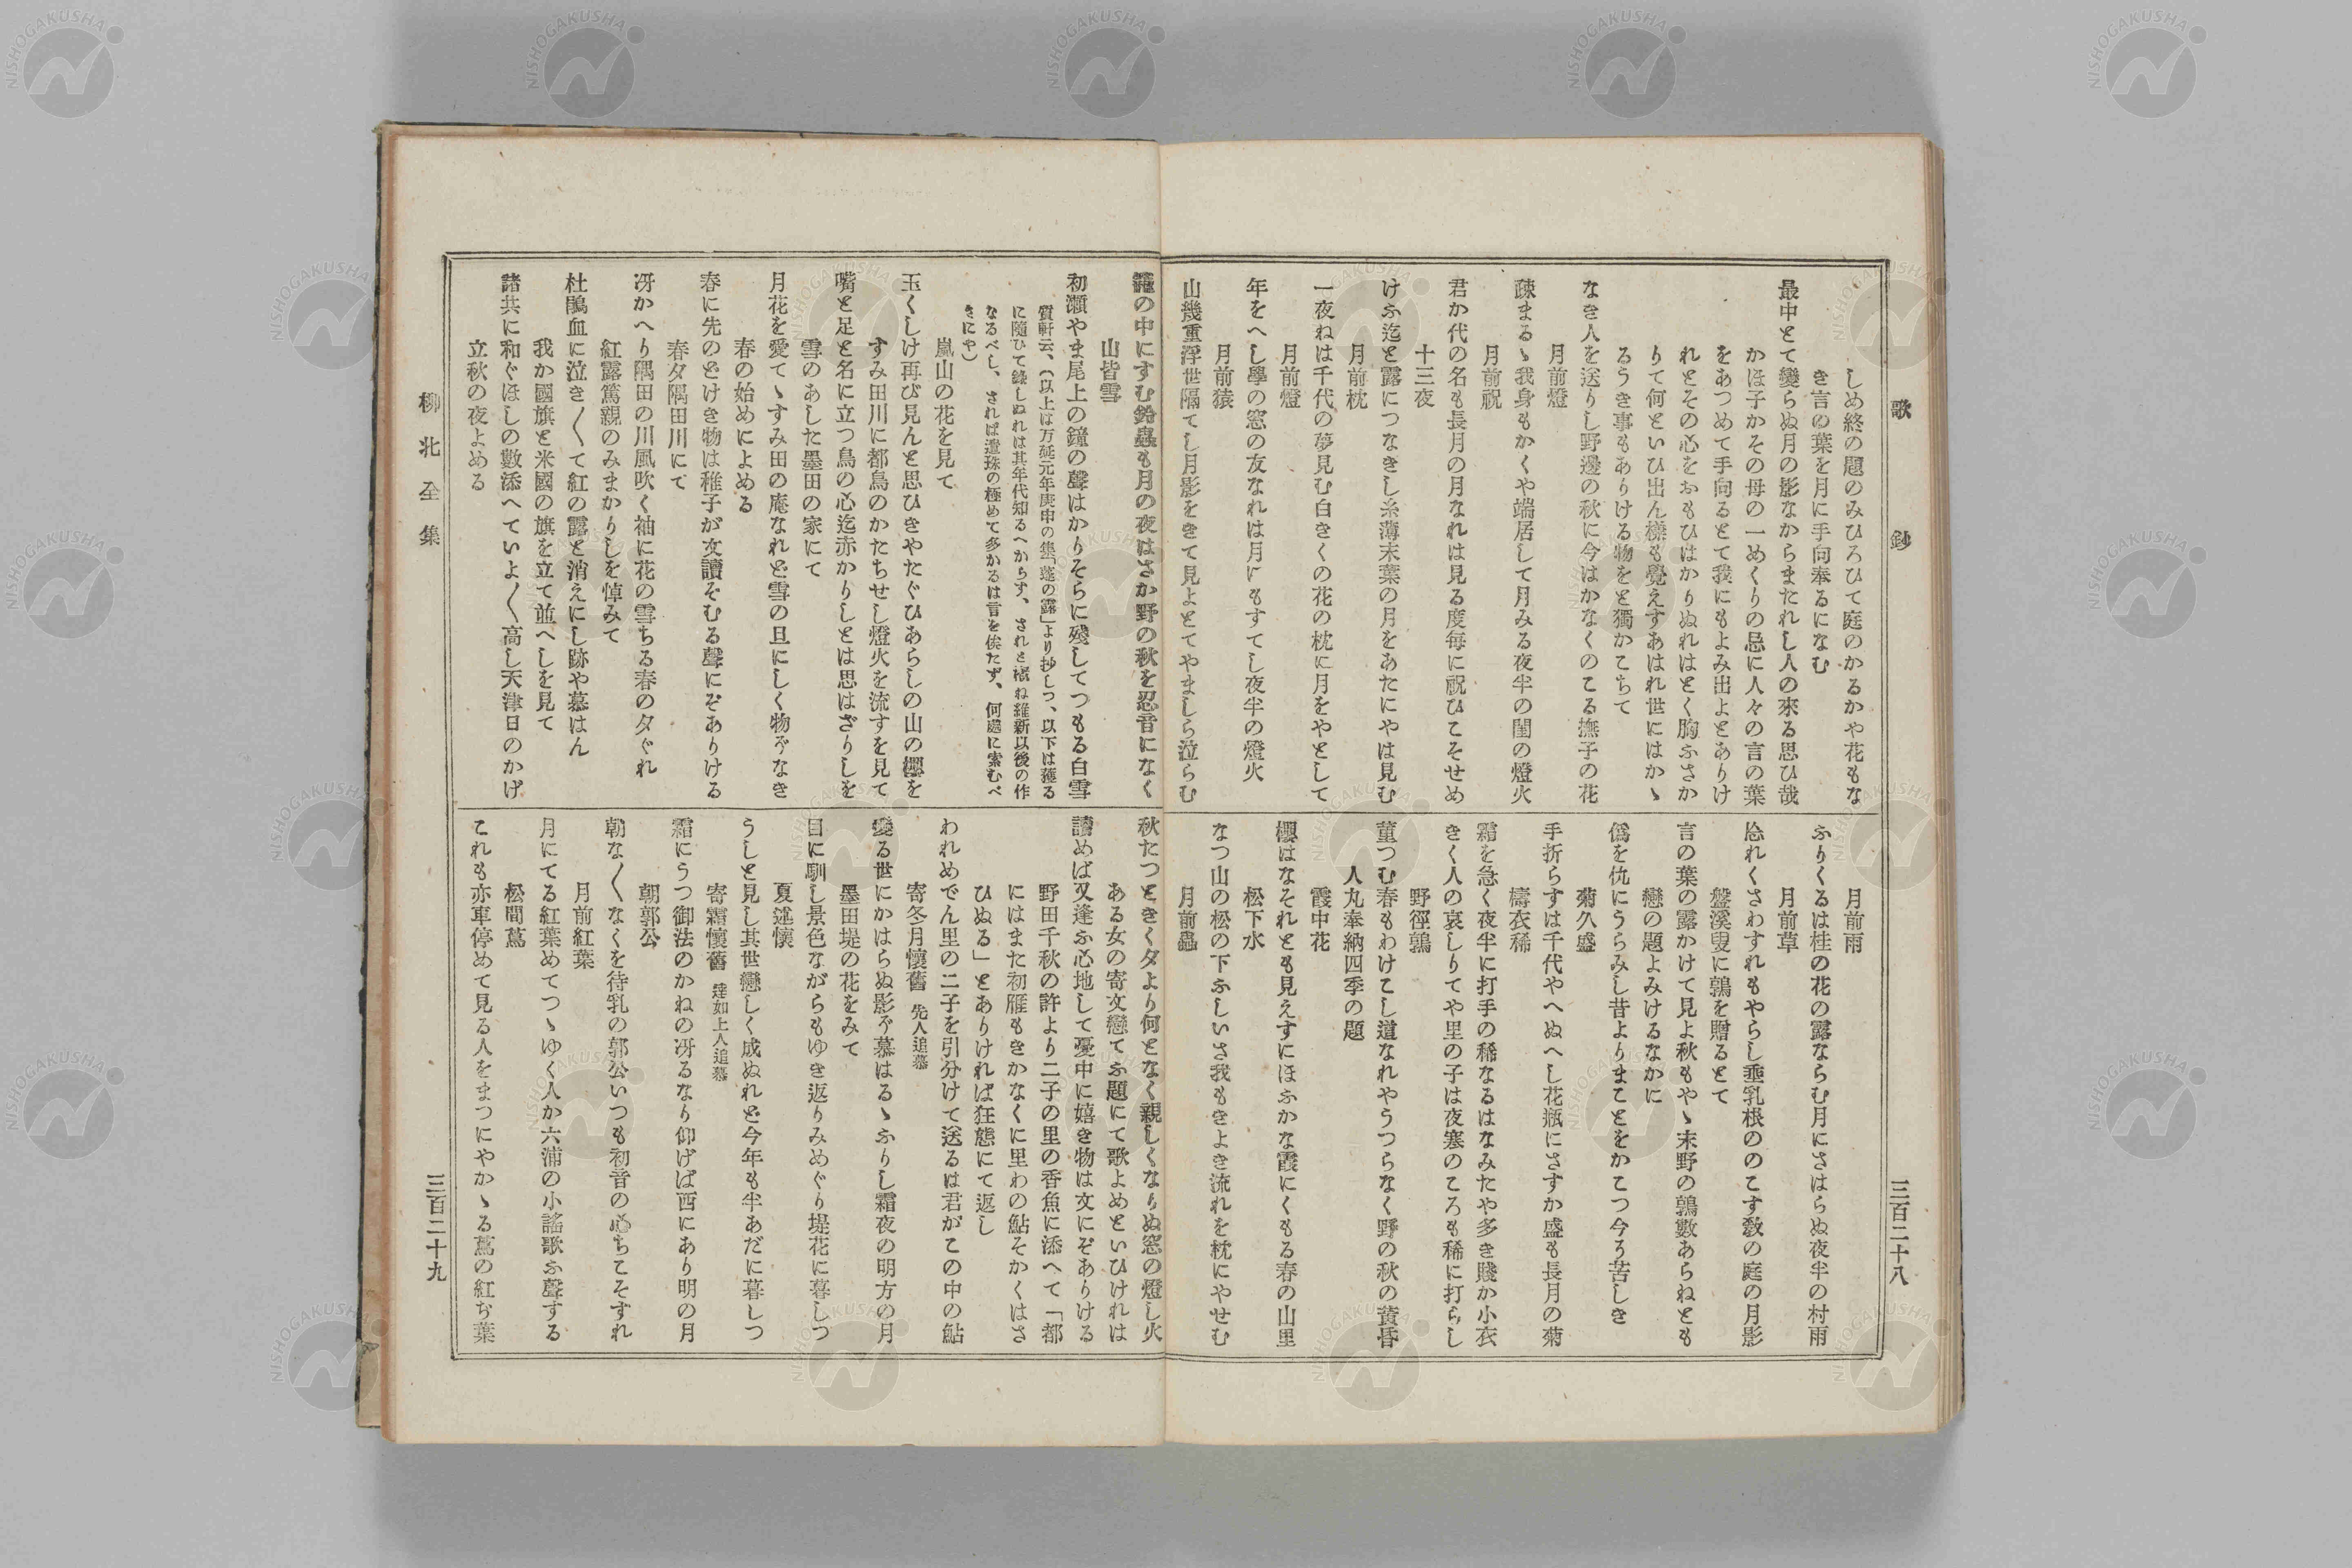 歌鈔
三百二十八
しめ終の題のみひろひて庭のかるかや花もな
き言の葉を月に手向奉るになむ
最中とて變らぬ月の影なからまたれし人の來る思ひ哉
かほ子かその母の一めくりの忌に人々の言の葉
をあつめて手向るとて我にもよみ出よとありけ
れとその心をおもひはかりぬれはとく胸ふさか
りて何といひ出ん樣も覺えすあはれ世にはかゝ
るうき事もありける物をと獨かこちて
なき人を送りし野邊の秋に今はかなくのこる撫子の花
月前燈
疎まるゝ我身もかくや端居して月みる夜半の閨の燈火
月前祝
君か代の名も長月の月なれは見る度毎に祝ひこそせめ
十三夜
けふ迄と露につなきし糸薄末葉の月をあたにやは見む
月前枕
一夜ねは千代の夢見む白きくの花の枕に月をやとして
月前燈
年をへし學の窓の友なれは月にもすてし夜半の燈火
月前猿
山幾重浮世隔てし月影をきて見よとてやましら泣らむ
月前雨
ふりくるは桂の花の露ならむ月にさはらぬ夜半の村雨
月前草
忘れくさわすれもやらし垂乳根ののこす敎の庭の月影
盤溪叟に鶉を贈るとて
言の葉の露かけて見よ秋もやゝ末野の鶉數あらねとも
戀の題よみけるなかに
僞を仇にうらみし昔よりまことをかこつ今そ苦しき
菊久盛
手折らすは千代やへぬへし花瓶にさすか盛も長月の菊
擣衣稀
霜を急く夜半に打手の稀なるはなみたや多き賤か小衣
きく人の哀しりてや里の子は夜寒のころも稀に打らし
野徑鶉
菫つむ春もわけこし道なれやうつらなく野の秋の黄昏
人丸奉納四季の題
霞中花
櫻はなそれとも見えすにほふかな霞にくもる春の山里
松下水
なつ山の松の下ふしいさ我もきよき流れを枕にやせむ
月前蟲
籠の中にすむ鈴蟲も月の夜はさか野の秋を忍音になく
山皆雪
初瀬やま尾上の鐘の聲はかりそらに殘してつもる白雪
質軒云、（以上は万延元年庚申の集「蓬の露」より抄しつ、以下は獲る
に隨ひて錄しぬれは其年代知るへからす、されと槪ね維新以後の作
なるべし、されば遺珠の極めて多かるは言を俟たず、何處に索むべ
きにや）
嵐山の花を見て
玉くしけ再び見んと思ひきやたぐひあらしの山の櫻を
すみ田川に都鳥のかたちせし燈火を流すを見て
嘴と足と名に立つ鳥の心迄赤かりしとは思はざりしを
雪のあした墨田の家にて
月花を愛てゝすみ田の庵なれど雪の旦にしく物ぞなき
春の始めによめる
春に先のどけき物は稚子が文讀そむる聲にぞありける
春夕隅田川にて
冴かへり隅田の川風吹く袖に花の雪ちる春の夕ぐれ
紅露篤親のみまかりしを悼みて
杜鵑血に泣き〱て紅の露と消えにし跡や慕はん
我か國旗と米國の旗を立て並へしを見て
諸共に和ぐほしの數添へていよ〱高し天津日のかげ
立秋の夜よめる
秋たつときく夕より何となく親しくなりぬ窓の燈し火
ある女の寄文戀てふ題にて歌よめといひけれは
讀めば又逢ふ心地して憂中に嬉き物は文にぞありける
野田千秋の許より二子の里の香魚に添へて「都
にはまた初雁もきかなくに里わの鮎そかくはさ
ひぬる」とありければ狂態にて返し
われめでん里の二子を引分けて送るは君がこの中の鮎
寄冬月懷舊　先人追慕
變る世にかはらぬ影ぞ慕はるゝふりし霜夜の明方の月
墨田堤の花をみて
目に馴し景色ながらもゆき返りみめぐり堤花に暮しつ
夏述懷
うしと見し其世戀しく成ぬれど今年も半あだに暮しつ
寄霜懷舊　達如上人追慕
霜にうつ御法のかねの冴るなり仰げば西にあり明の月
朝郭公
朝な〱なくを待乳の郭公いつも初音の心ちこそすれ
月前紅葉
月にてる紅葉めてつゝゆく人か六浦の小謠歌ふ聲する
松間蔦
これも亦車停めて見る人をまつにやかゝる蔦の紅ぢ葉
柳北全集
三百二十九